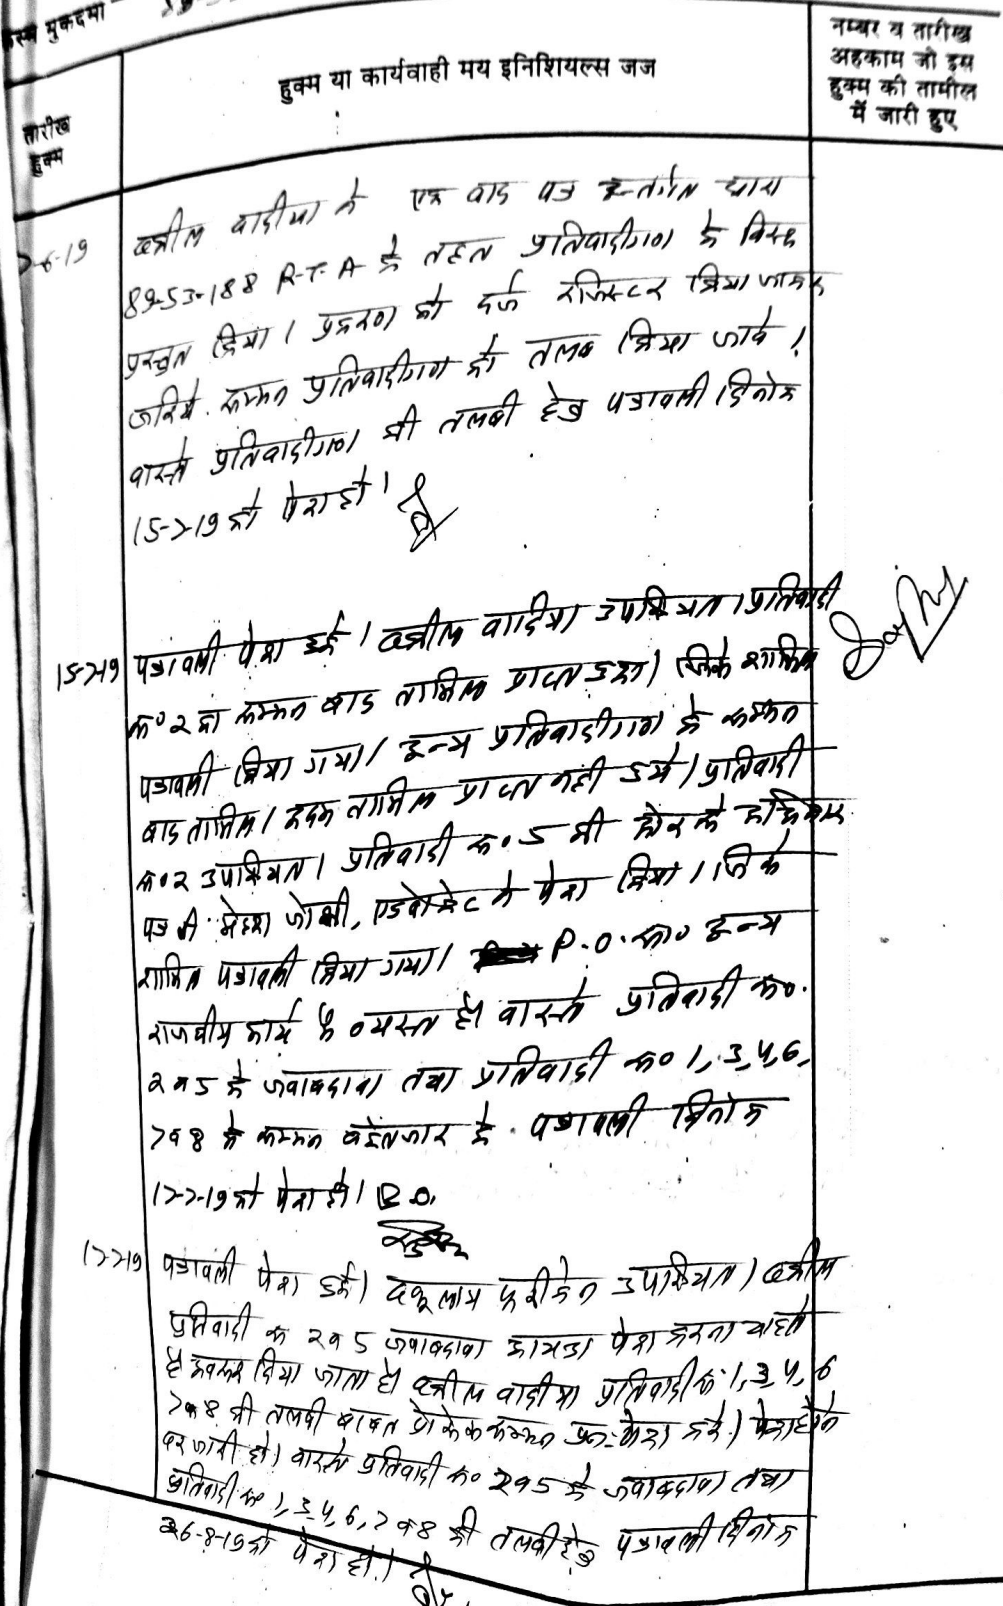 किस्म मुकदमा
तारीख
हुक्म
हुक्म या कार्यवाही मय इनिशियल्स जज
नम्बर व तारीख
अहकाम जो इस
हुक्म की तामील
में जारी हुए
-6-19
वकील वादीया ने एक वाद पत्र अन्तर्गत धारा
89-53-188 R.T.A के तहत प्रतिवादीगण के विरुद्ध
प्रस्तुत किया। प्रकरण को दर्ज रजिस्टर किया जाकर
जरिये सम्मन प्रतिवादीगण को तलब किया जावे।
वास्ते प्रतिवादीगण की तलबी हेतु पत्रावली दिनांक
15-7-19 को पेश हो।
15-7-19
पत्रावली पेश हुई। वकील वादिया उपस्थित। प्रतिवादी
क्र० 2 का सम्मन बाद तामिल प्राप्त हुआ। जिसे शामिल
पत्रावली किया गया। अन्य प्रतिवादीगण के सम्मन
बाद तामिल/अदम तामिल प्राप्त नही हुये। प्रतिवादी
क्र० 2 उपस्थित। प्रतिवादी क्र० 5 की ओर से अधिकार
पत्र श्री महेश जोशी, एडवोकेट ने पेश किया। जिसे
शामिल पत्रावली किया गया। P.O. सा० अन्य
राजकीय कार्य में व्यस्त है। वास्ते प्रतिवादी क्र०
2 व 5 के जवाबदावा तथा प्रतिवादी क्र० 1, 3, 4, 6,
7 व 8 के सम्मन इंतजार में पत्रावली दिनांक
17-7-19 को पेश हो। R.O.
17-7-19
पत्रावली पेश हुई। वकूलाय फरीकेन उपस्थित। वकील
प्रतिवादी क्र 2 व 5 जवाबदावा पेश करना चाहते
है अवसर दिया जाता है। वकील वादीया प्रतिवादी क्र० 1, 3, 4, 6
7 व 8 की तलबी बाबत सम्मन पुनः पेश करे। पेश होने
पर जारी हो। वास्ते प्रतिवादी क्र० 2 व 5 के जवाबदावा तथा
प्रतिवादी क्र० 1, 3, 4, 6, 7 व 8 की तलबी हेतु पत्रावली दिनांक
26-8-19 को पेश हो।